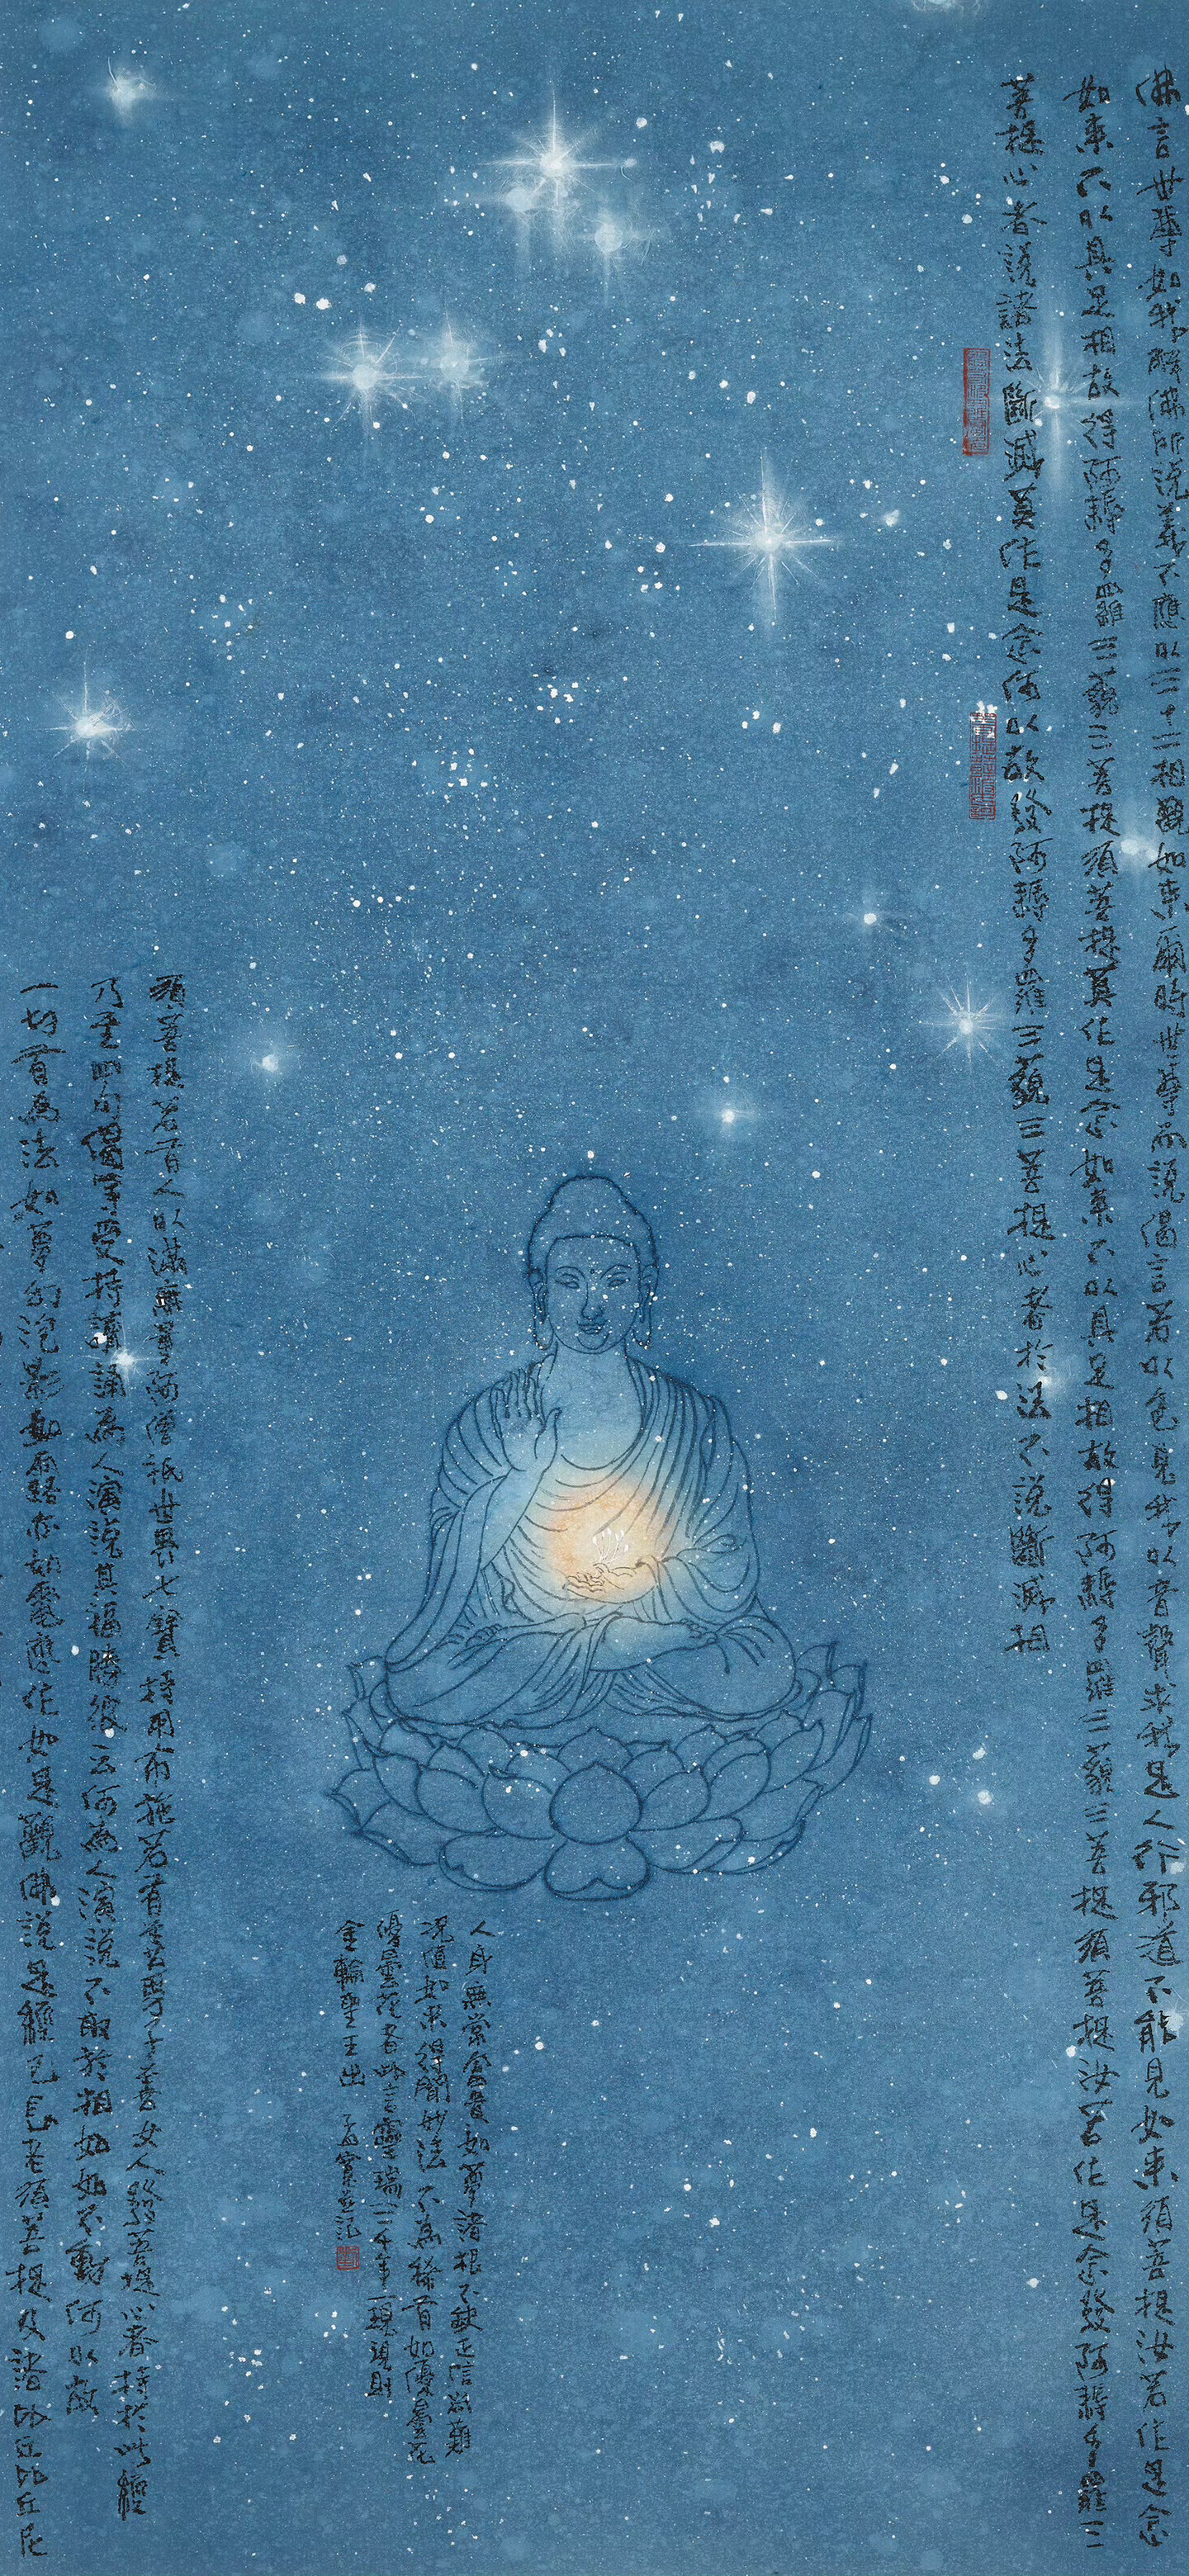 佛言世尊如我解佛所說義不應以三十二相觀如來爾時世尊而說偈言若以色見我以音聲求我是人行邪道不能見如來須菩提汝若作是念
如來不以具足相故得阿耨多羅三藐三菩提須菩提莫作是念如來不以具足相故得阿耨多羅三藐三菩提須菩提汝若作是念發阿耨多羅三
菩提心者說諸法斷滅莫作是念何以故發阿耨多羅三藐三菩提心者於法不說斷滅相
須菩提若有人以滿無量阿僧祇世界七寶持用布施若有善男子善女人發菩提心者持於此經
乃至四句偈等受持讀誦為人演說其福勝彼云何為人演說不取於相如如不動何以故
一切有為法如夢幻泡影如露亦如電應作如是觀佛說是經已長老須菩提及諸比丘比丘尼
人身無常富貴如夢諸根不缺正信尚難
況值如來得聞妙法不為稀有如優曇花
優曇花者此言靈瑞三千年一現現則
金輪聖王出